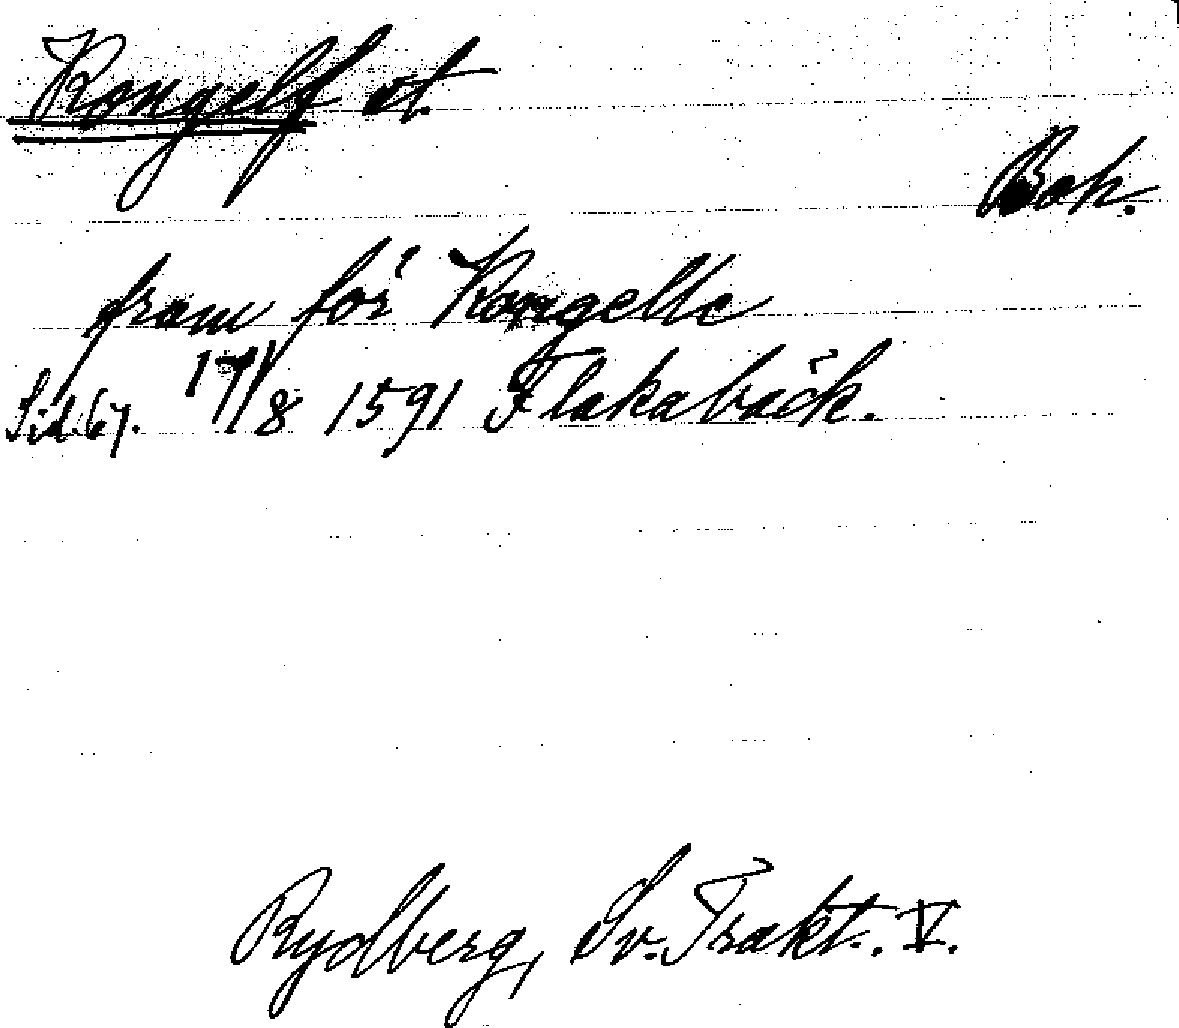 Kongelf st.
Boh.
fram för Kongelle
Sid. 67. 17/8 1591 Flakabäck.
Rydberg, Sv. Trakt. V.